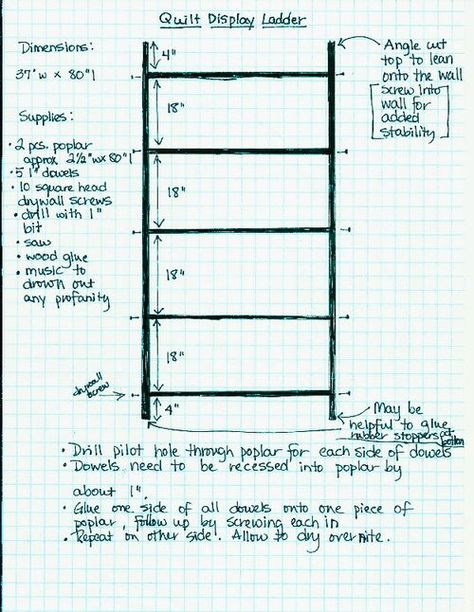 Quilt Display Ladder
Dimensions:
37"w x 80"l
Supplies:
• 2 pcs. poplar
approx 2½"w x 80"l
• 5 1" dowels
• 10 square head
drywall screws
• drill with 1"
bit
• saw
• wood glue
• music to
drown out
any profanity
4"
18"
18"
18"
18"
4"
Angle cut
top to lean
onto the wall
screw into
wall for
added
stability
drywall
screw
May be
helpful to glue
rubber stoppers at
bottom
• Drill pilot hole through poplar for each side of dowels
• Dowels need to be recessed into poplar by
about 1".
• Glue one side of all dowels onto one piece of
poplar, follow up by screwing each in
• Repeat on other side. Allow to dry overnite.